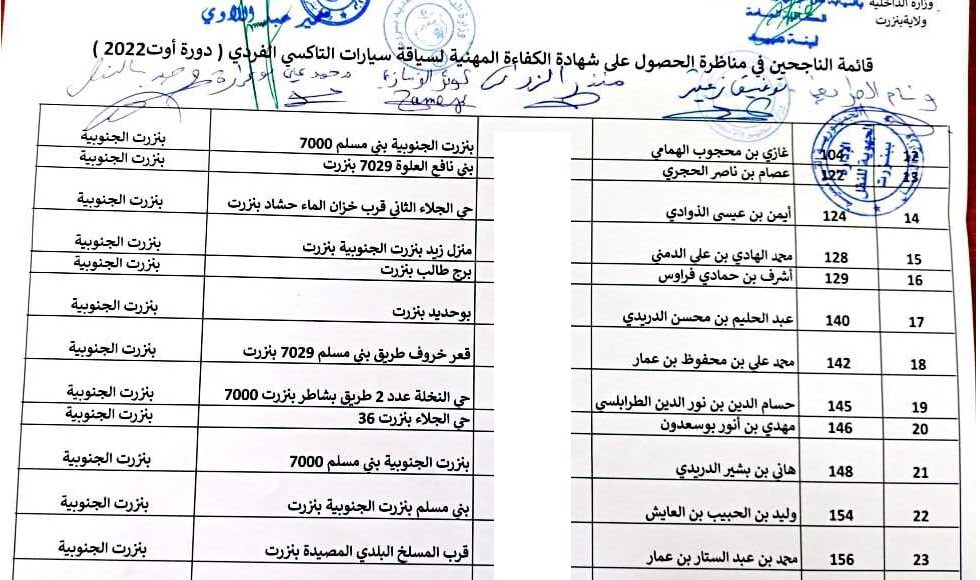 وزارة الداخلية
ولاية بنزرت
قائمة الناجحين في مناظرة الحصول على شهادة الكفاءة المهنية لسياقة سيارات التاكسي الفردي ( دورة أوت2022 )
12 104 غازي بن محجوب الهمامي بنزرت الجنوبية بني مسلم 7000 بنزرت الجنوبية
13 122 عصام بن ناصر الحجري بني نافع العلوة 7029 بنزرت بنزرت الجنوبية
14 124 أيمن بن عيسى الذوادي حي الجلاء الثاني قرب خزان الماء حشاد بنزرت بنزرت الجنوبية
15 128 محمد الهادي بن علي الدمني منزل زيد بنزرت الجنوبية بنزرت بنزرت الجنوبية
16 129 أشرف بن حمادي فراوس برج طالب بنزرت بنزرت الجنوبية
17 140 عبد الحليم بن محسن الدريدي بوحديد بنزرت بنزرت الجنوبية
18 142 محمد علي بن محفوظ بن عمار قعر خروف طريق بني مسلم 7029 بنزرت بنزرت الجنوبية
19 145 حسام الدين بن نور الدين الطرابلسي حي النخلة عدد 2 طريق بشاطر بنزرت 7000 بنزرت الجنوبية
20 146 مهدي بن أنور بوسعدون حي الجلاء بنزرت 36 بنزرت الجنوبية
21 148 هاني بن بشير الدريدي بنزرت الجنوبية بني مسلم 7000 بنزرت الجنوبية
22 154 وليد بن الحبيب بن العايش بني مسلم بنزرت الجنوبية بنزرت بنزرت الجنوبية
23 156 محمد بن عبد الستار بن عمار قرب المسلخ البلدي المصيدة بنزرت بنزرت الجنوبية